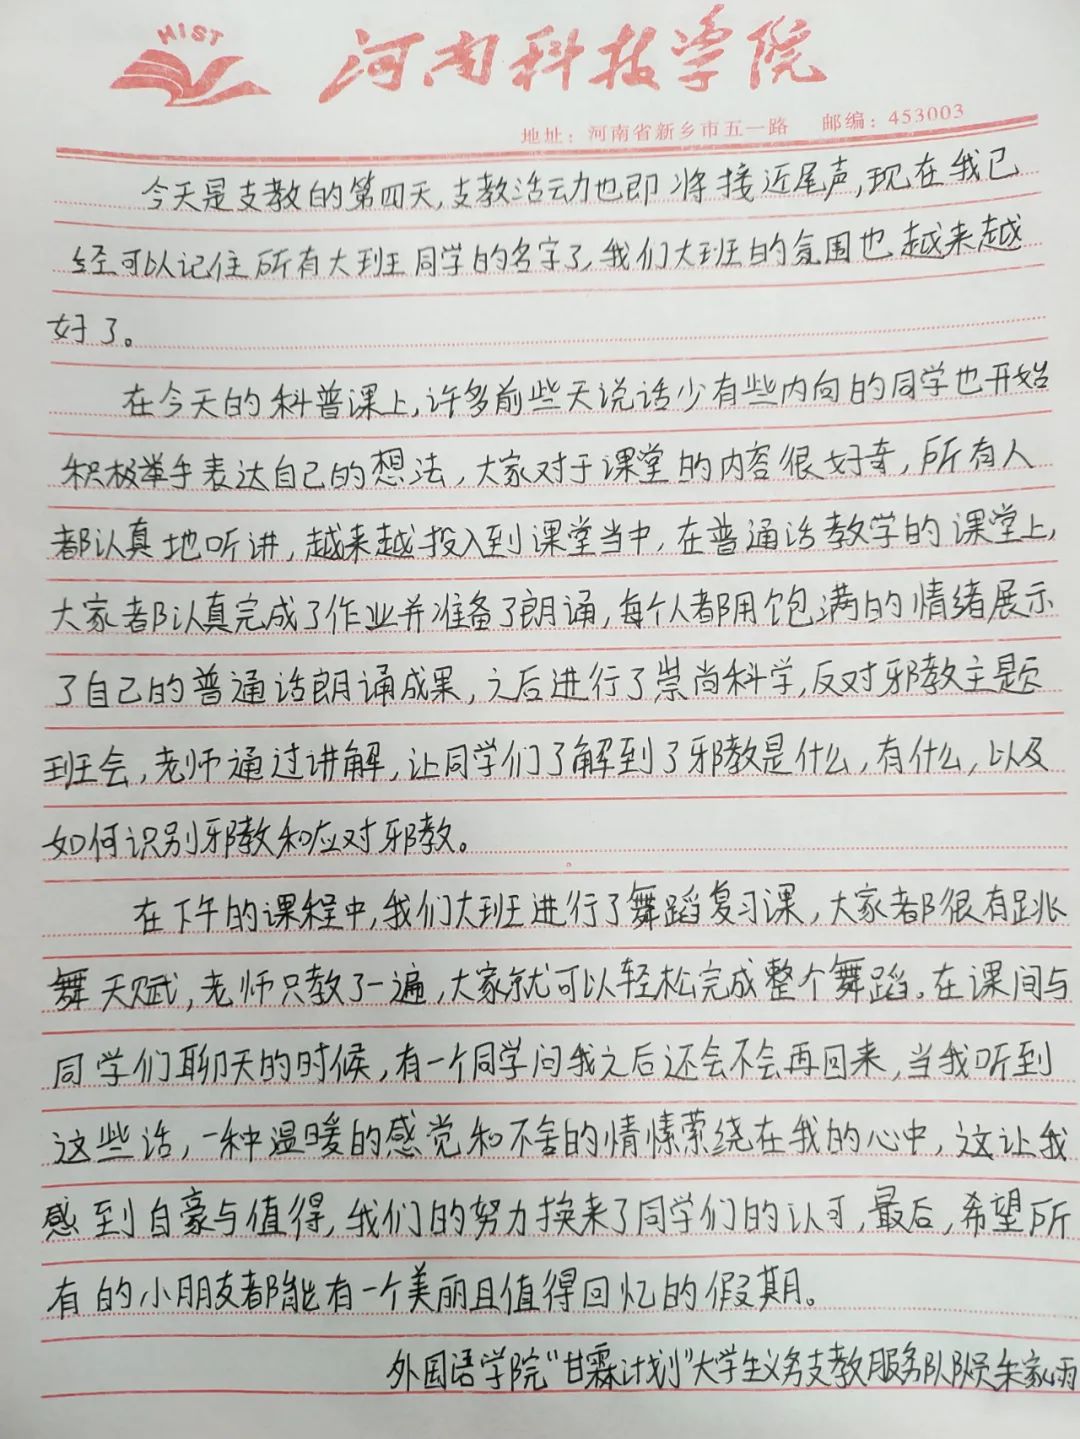 HIST
河南科技学院
地址：河南省新乡市五一路 邮编：453003
今天是支教的第四天,支教活动也即将接近尾声,现在我已
经可以记住所有大班同学的名字了,我们大班的氛围也越来越
好了。
在今天的科普课上,许多前些天说话少有些内向的同学也开始
积极举手表达自己的想法,大家对于课堂的内容很好奇,所有人
都认真地听讲,越来越投入到课堂当中,在普通话教学的课堂上,
大家都认真完成了作业并准备了朗诵,每个人都用饱满的情绪展示
了自己的普通话朗诵成果,之后进行了崇尚科学,反对邪教主题
班会,老师通过讲解,让同学们了解到了邪教是什么,有什么,以及
如何识别邪教和应对邪教。
在下午的课程中,我们大班进行了舞蹈复习课,大家都很有跳
舞天赋,老师只教了一遍,大家就可以轻松完成整个舞蹈。在课间与
同学们聊天的时候,有一个同学问我之后还会不会再回来,当我听到
这些话,一种温暖的感觉和不舍的情愫萦绕在我的心中,这让我
感到自豪与值得,我们的努力换来了同学们的认可,最后,希望所
有的小朋友都能有一个美丽且值得回忆的假期。
外国语学院"甘霖计划"大学生义务支教服务队队员朱家雨